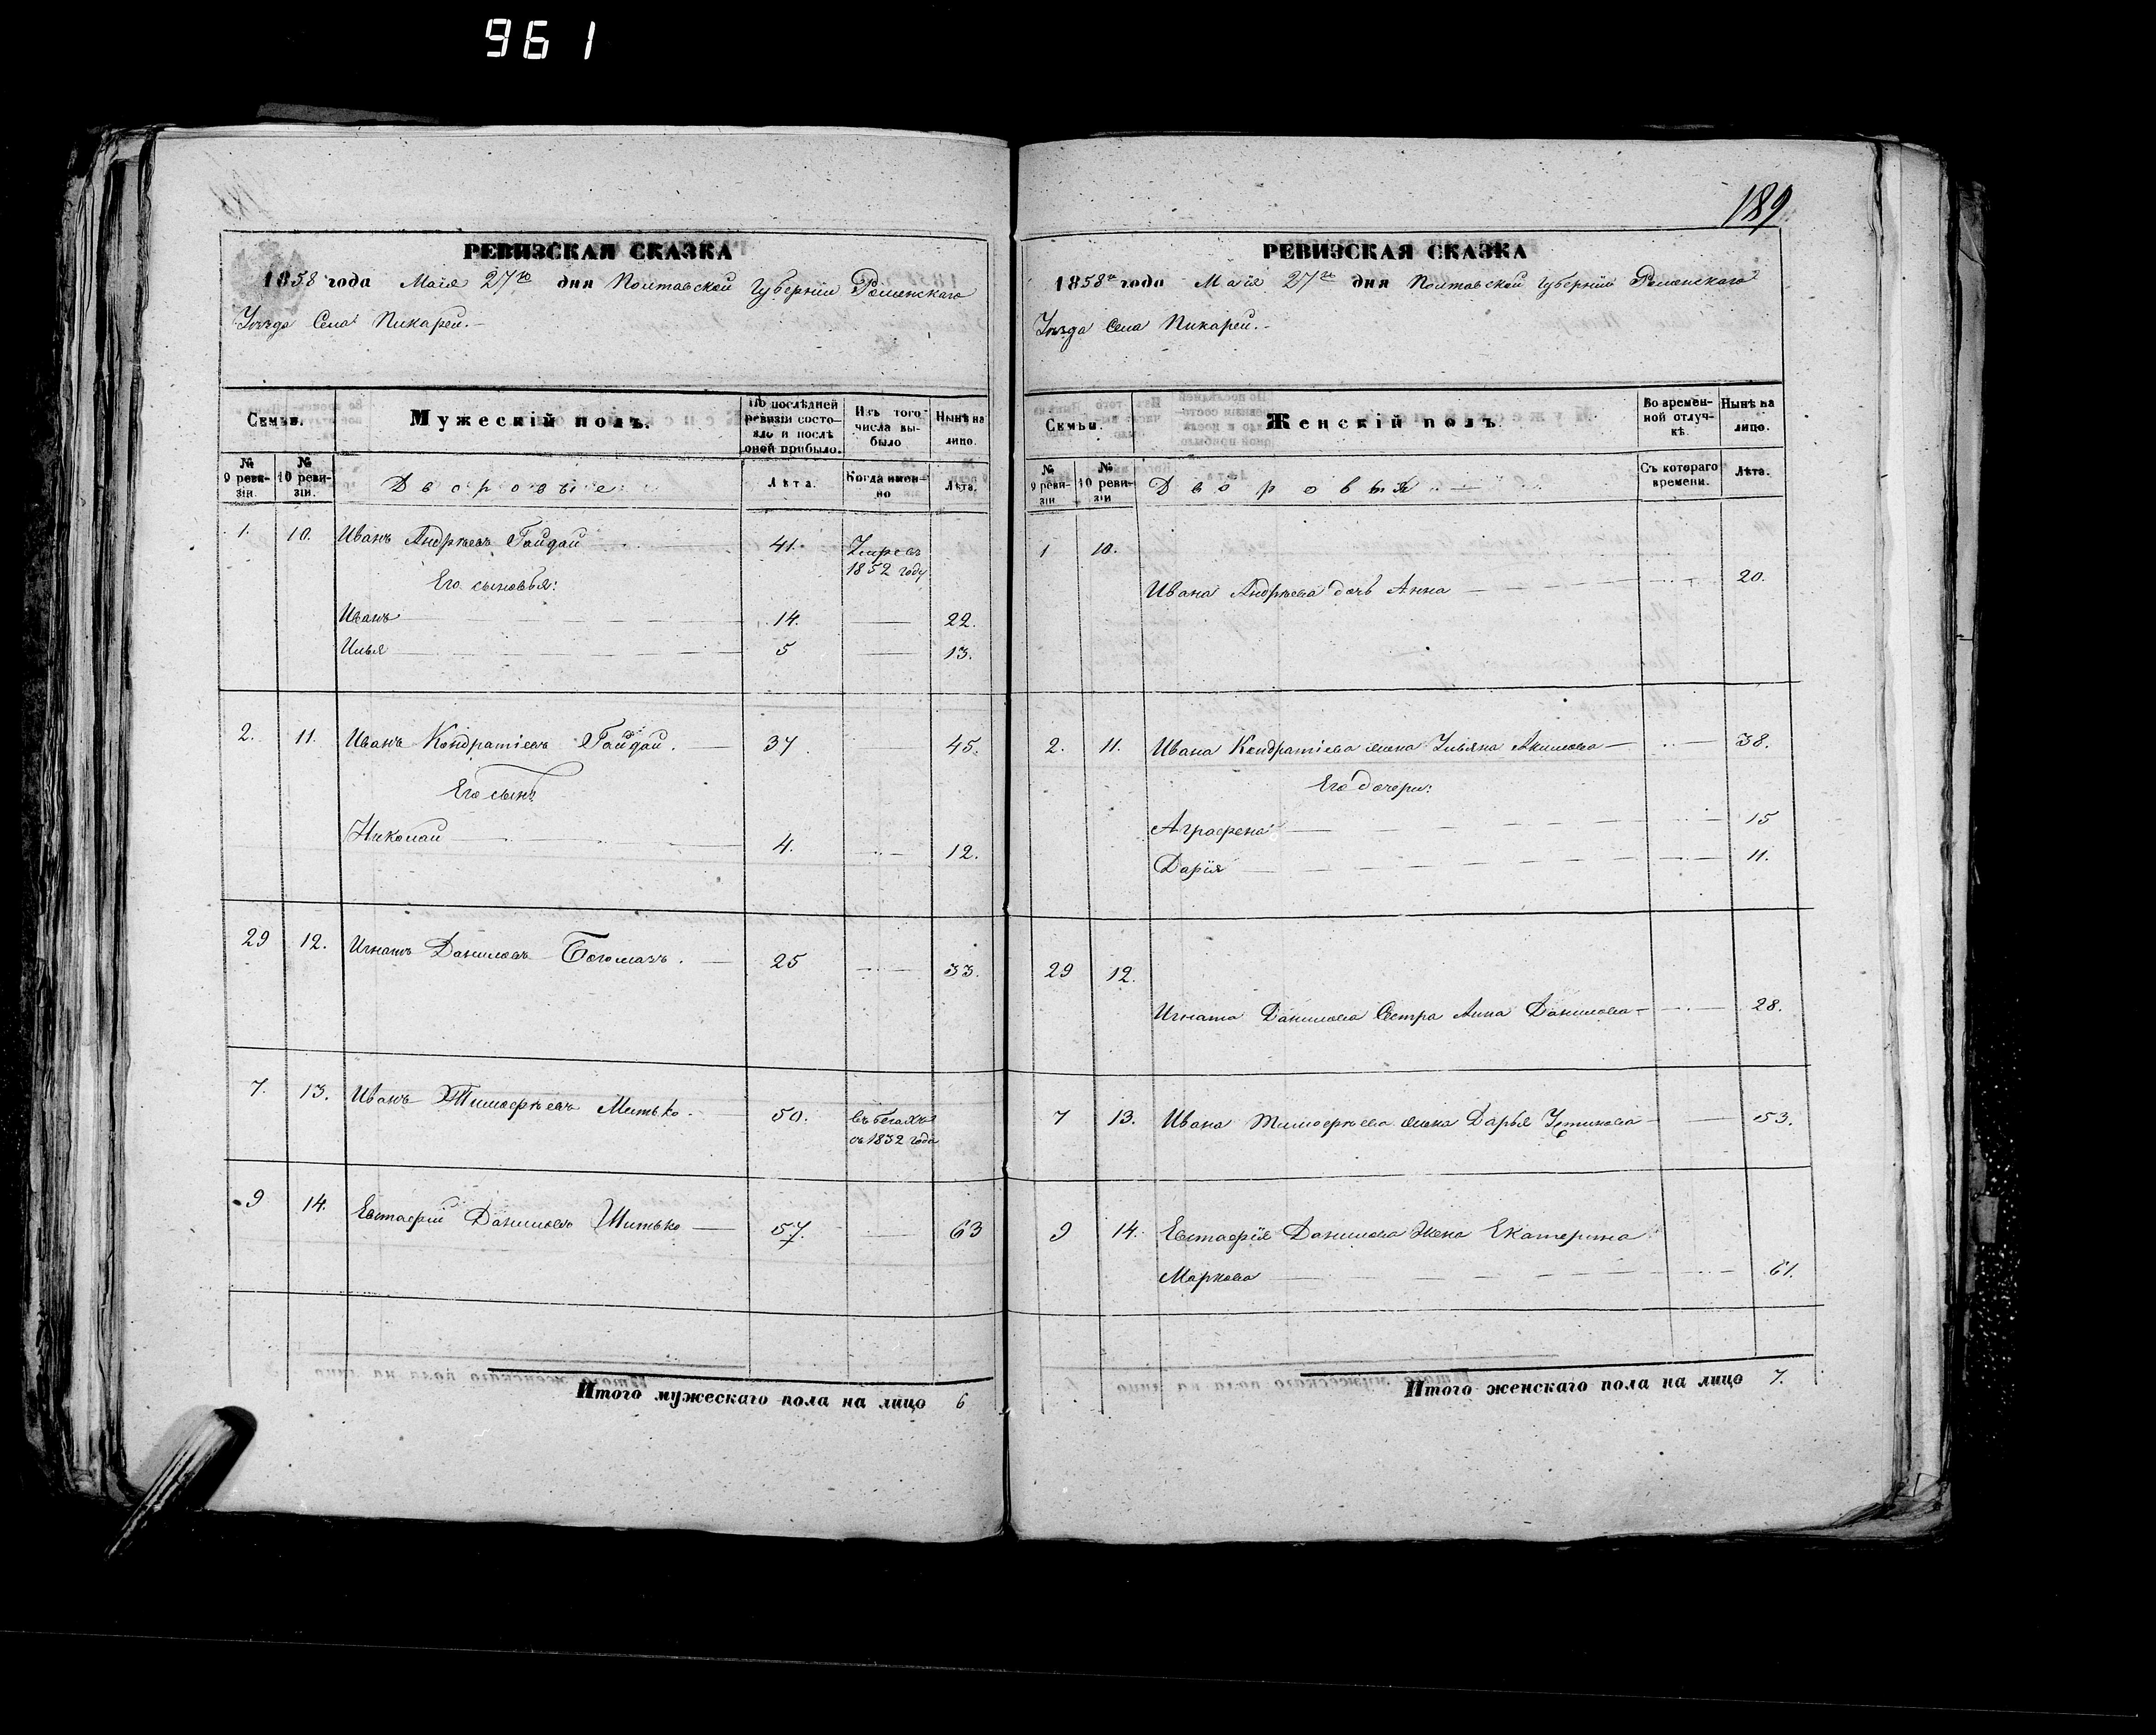 961
РЕВИЗСКАЯ СКАЗКА
1858 года Маія 27го дня Полтавской Губерніи Роменскаго
Уѣзда Села Пикарей.
Семьи.
Мужескій полъ.
По послѣдней ревизіи состояло и послѣ оной прибыло.
Изъ того числа выбыло
Нынѣ на лицо.
№ 9 ревизіи.
№ 10 ревизіи.
Дворовые
Лѣта.
Когда именно
Лѣта.
1. 10. Иванъ Андреевъ Гайдай 41. Умре въ
1852 году
Его сыновья:
Иванъ 14. 22.
Илья 5 13.
2. 11. Иванъ Кондратіевъ Гайдай. 37. 45.
Его сынъ
Николай 4. 12.
29 12. Игнатъ Даниловъ Богомазъ. 25 33.
7. 13. Иванъ Тимоѳеевъ Митько. 50. въ бегахъ
съ 1832 года
9 14. Евстафій Даниловъ Шитько 57. 63
Итого мужескаго пола на лицо 6
189
РЕВИЗСКАЯ СКАЗКА
1858го года Маія 27го дня Полтавской Губерніи Роменскаго
Уѣзда Села Пикарей.
Семьи.
Женскій полъ.
Во временной отлучкѣ.
Нынѣ на лицо.
№ 9 ревизіи
№ 10 ревизіи
Дворовыя
Съ котораго времени.
Лѣта.
1 10.
Ивана Андреева дочь Анна 20.
2. 11. Ивана Кондратіева жена Ульяна Акимова 38.
Его дочери:
Аграфена 15
Дарія 11.
29 12.
Игната Данилова Сестра Анна Данилова 28.
7 13. Ивана Тимоѳеева жена Дарья Устинова 53.
9 14. Евстафія Данилова Жена Екатерина
Маркова 61.
Итого женскаго пола на лицо 7.